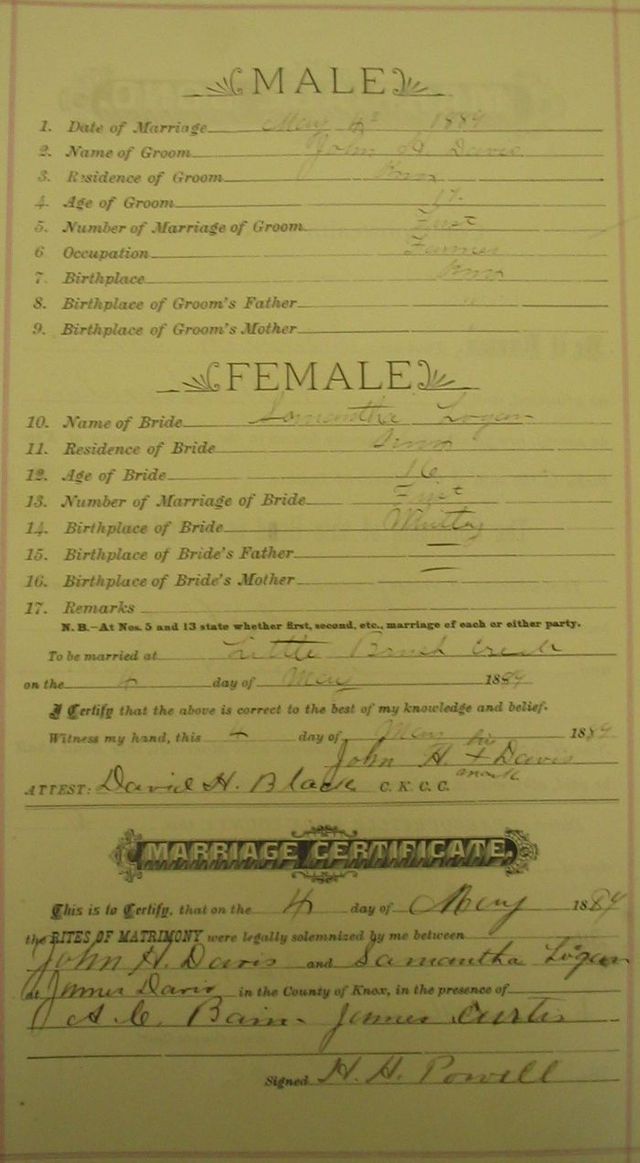 MALE
1. Date of Marriage May 4th 1889
2. Name of Groom John H Davis
3. Residence of Groom Knox
4. Age of Groom 17
5. Number of Marriage of Groom First
6 Occupation Farmer
7. Birthplace Knox
8. Birthplace of Groom's Father "
9. Birthplace of Groom's Mother
FEMALE
10. Name of Bride Samantha Logan
11. Residence of Bride Knox
12. Age of Bride 16
13. Number of Marriage of Bride First
14. Birthplace of Bride
15. Birthplace of Bride's Father —
16. Birthplace of Bride's Mother —
17. Remarks
N. B.—At Nos. 5 and 13 state whether first, second, etc., marriage of each or either party.
To be married at Little Brush Creek
on the 4 day of May 1889
I Certify that the above is correct to the best of my knowledge and belief.
Witness my hand, this 4 day of May 1889
John H his + mark Davis
ATTEST: David H. Black C. K. C. C.
MARRIAGE CERTIFICATE.
This is to Certify, that on the 4 day of May 1889
the RITES OF MATRIMONY were legally solemnized by me between
John H. Davis and Samantha Logan
at James Davis in the County of Knox, in the presence of
A. C. Bain James Curtis
Signed H. H. Powell